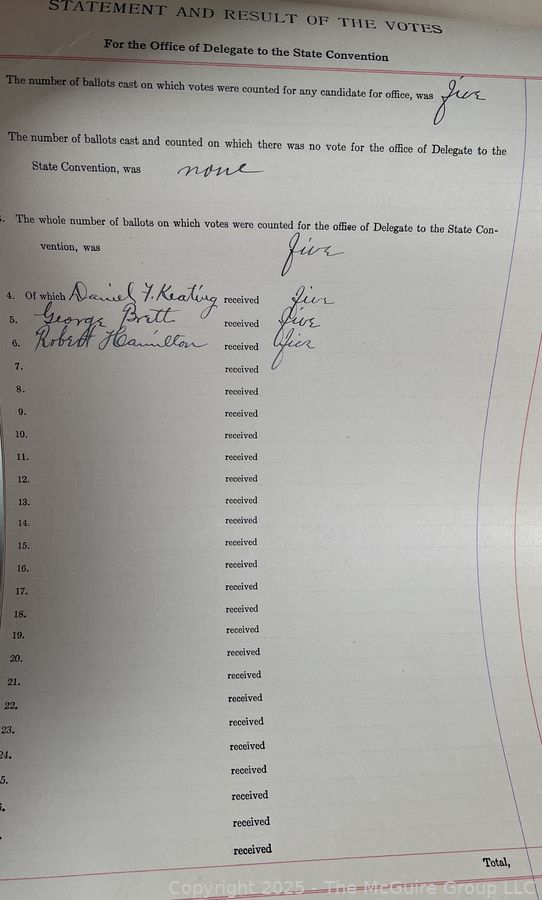 STATEMENT AND RESULT OF THE VOTES
For the Office of Delegate to the State Convention
The number of ballots cast on which votes were counted for any candidate for office, was five
The number of ballots cast and counted on which there was no vote for the office of Delegate to the
State Convention, was none
. The whole number of ballots on which votes were counted for the office of Delegate to the State Con-
vention, was five
4. Of which Daniel F. Keating received five
5. George Brett received five
6. Robert Hamilton received five
7. received
8. received
9. received
10. received
11. received
12. received
13. received
14. received
15. received
16. received
17. received
18. received
19. received
20. received
21. received
22. received
23. received
24. received
5. received
. received
received
received
Total,
Copyright 2025 - The McGuire Group LLC